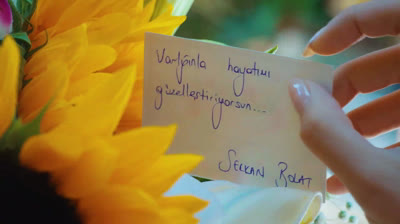 Varlığınla hayatımı
güzelleştiriyorsun...
SERKAN BOLAT